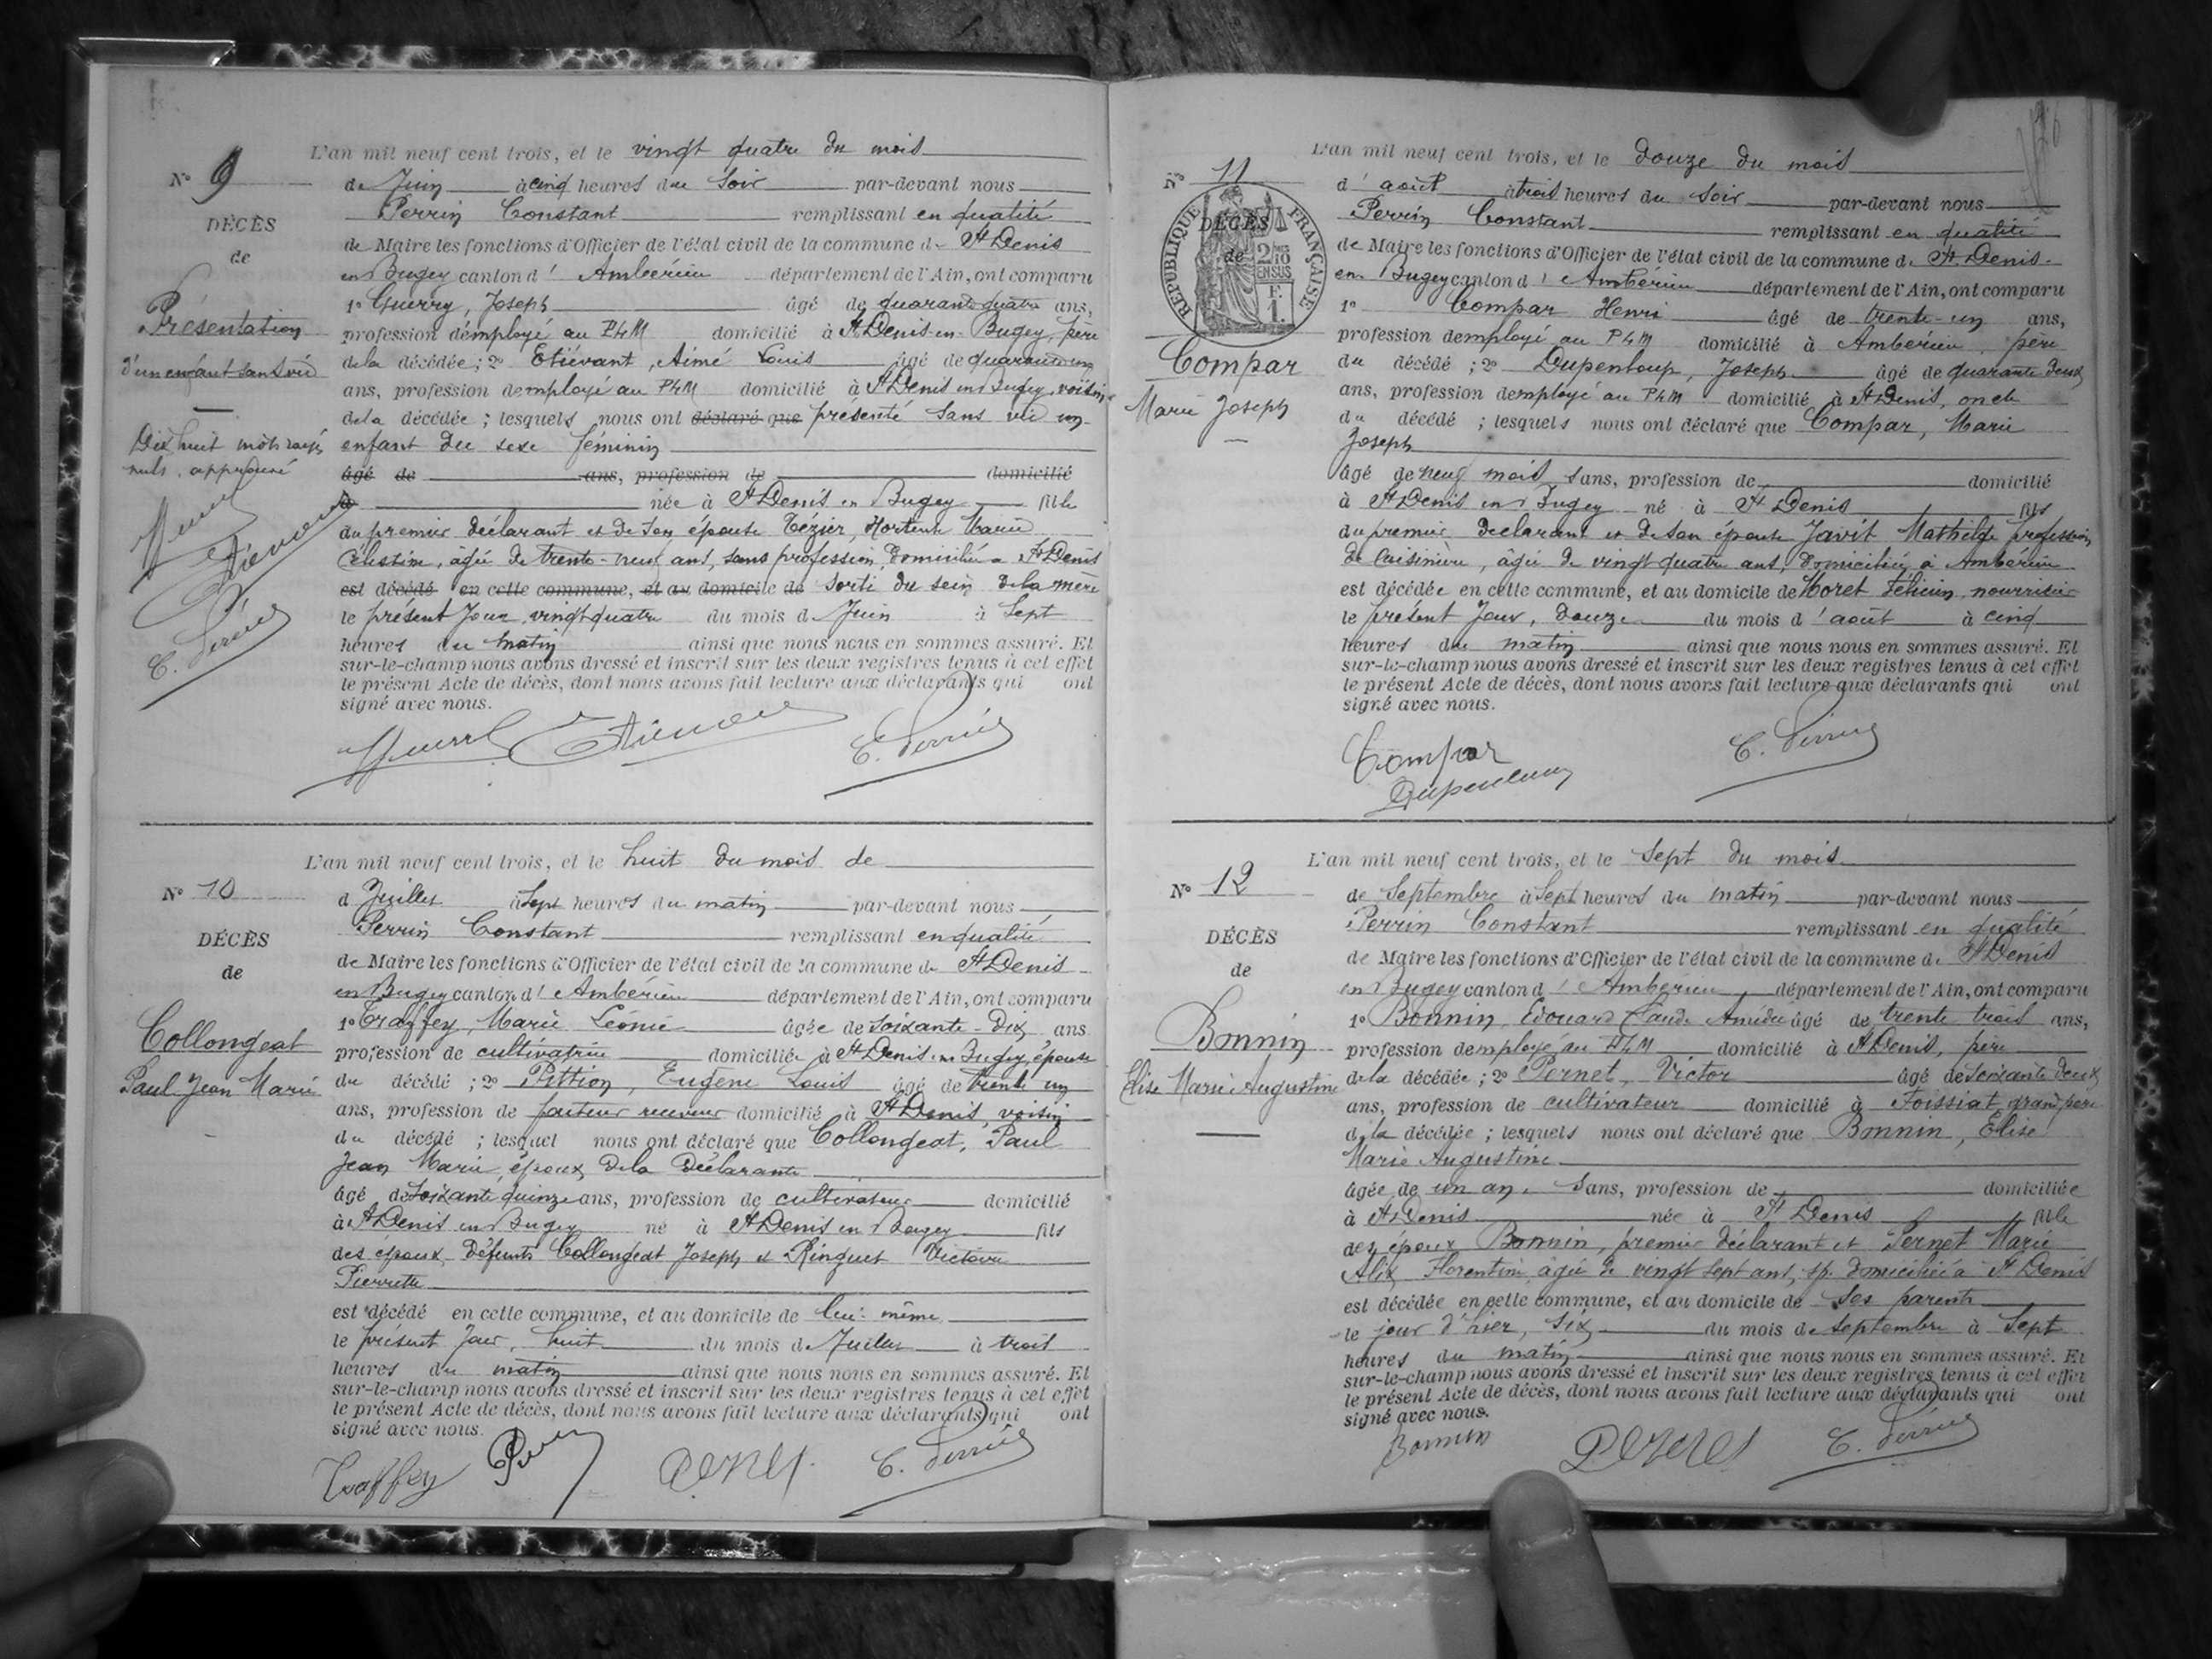 L'an mil neuf cent trois, et le vingt quatre du mois
N° 9
de Juin à cinq heures du soir par-devant nous
Perrin Constant remplissant en qualité
DÉCÈS
de Maire les fonctions d'Officier de l'état civil de la commune de St Denis
de
en Bugey canton d' Ambérieu département de l'Ain, ont comparu
1° Guerry, Joseph âgé de quarante quatre ans,
Présentation
profession d'employé au PLM domicilié à St Denis en Bugey, père
d'un enfant sans vie
de la décédée ; 2° Etiévant, Aimé Louis âgé de quarante un
ans, profession d'employé au PLM domicilié à St Denis en Bugey, voisin
de la décédée ; lesquels nous ont déclaré que présenté sans vie un
Dix huit mots rayés
enfant du sexe féminin
nuls. approuvé
âgé de ans, profession de domicilié
à née à St Denis en Bugey fille
du premier déclarant et de son épouse Tézier, Hortense Marie
Célestine, âgée de trente-neuf ans, sans profession, domiciliée à St Denis
est décédé en cette commune, et au domicile de sorti du sein de la mère
le présent jour, vingt quatre du mois de Juin à sept
C. Perrin
heures du matin ainsi que nous nous en sommes assuré. Et
sur-le-champ nous avons dressé et inscrit sur les deux registres tenus à cet effet
le présent Acte de décès, dont nous avons fait lecture aux déclarants qui ont
signé avec nous.
C. Perrin
L'an mil neuf cent trois, et le huit du mois de
N° 10
d Juillet à sept heures du matin par-devant nous
Perrin Constant remplissant en qualité
DÉCÈS
de Maire les fonctions d'Officier de l'état civil de la commune de St Denis
de
en Bugey canton d' Ambérieu département de l'Ain, ont comparu
1° Traffey, Marie Léonie âgée de soixante-dix ans
Collongeat
profession de cultivatrice domiciliée à St Denis en Bugey, épouse
Paul Jean Marie
du décédé ; 2° Pittion, Eugène Louis âgé de trente un
ans, profession de facteur receveur domicilié à St Denis, voisin
du décédé ; lesquel nous ont déclaré que Collongeat, Paul
Jean Marie, époux de la déclarante
âgé de soixante quinze ans, profession de cultivateur domicilié
à St Denis en Bugey né à St Denis en Bugey fils
des époux défunts Collongeat Joseph et Ringuet Victoire
Pierrette
est décédé en cette commune, et au domicile de lui-même
le présent jour, huit du mois de Juillet à trois
heures du matin ainsi que nous nous en sommes assuré. Et
sur-le-champ nous avons dressé et inscrit sur les deux registres tenus à cet effet
le présent Acte de décès, dont nous avons fait lecture aux déclarants qui ont
signé avec nous.
Traffey C. Perrin
L'an mil neuf cent trois, et le douze du mois
N° 11
d' août à trois heures du soir par-devant nous
Perrin Constant remplissant en qualité
RÉPUBLIQUE FRANÇAISE
DÉCÈS
de
2/10 EN SUS
F. 1.
de Maire les fonctions d'Officier de l'état civil de la commune de St Denis
en Bugey canton d' Ambérieu département de l'Ain, ont comparu
1° Compar Henri âgé de trente-un ans,
profession d'employé au PLM domicilié à Ambérieu, père
Compar
du décédé ; 2° Dupenloup, Joseph âgé de quarante deux
ans, profession d'employé au PLM domicilié à St Denis, oncle
Marie Joseph
du décédé ; lesquels nous ont déclaré que Compar, Marie
Joseph
âgé de neuf mois, sans, profession de domicilié
à St Denis en Bugey né à St Denis fils
du premier déclarant et de son épouse Javit Mathilde profession
de cuisinière, âgée de vingt quatre ans, domiciliée à Ambérieu
est décédée en cette commune, et au domicile de Moret Félicien, nourricier
le présent jour, douze du mois d' août à cinq
heures du matin ainsi que nous nous en sommes assuré. Et
sur-le-champ nous avons dressé et inscrit sur les deux registres tenus à cet effet
le présent Acte de décès, dont nous avons fait lecture aux déclarants qui ont
signé avec nous.
Compar C. Perrin
L'an mil neuf cent trois, et le sept du mois
N° 12
de Septembre à sept heures du matin par-devant nous
Perrin Constant remplissant en qualité
DÉCÈS
de Maire les fonctions d'Officier de l'état civil de la commune de St Denis
de
en Bugey canton d' Ambérieu, département de l'Ain, ont comparu
1° Bonnin, Edouard Claude Amédée âgé de trente trois ans,
Bonnin
profession d'employé au PLM domicilié à St Denis, père
Elise Marie Augustine
de la décédée ; 2° Pernet, Victor âgé de soixante deux
ans, profession de cultivateur domicilié à Foissiat grand père
de la décédée ; lesquels nous ont déclaré que Bonnin, Elise
Marie Augustine
âgée de un an, sans, profession de domiciliée
à St Denis née à St Denis fille
des époux Bonnin, premier déclarant et Pernet Marie
Alix Florentine, âgée de vingt sept ans, sp. domiciliée à St Denis
est décédée en cette commune, et au domicile de ses parents
le jour d'hier, six du mois de septembre à sept
heures du matin ainsi que nous nous en sommes assuré. Et
sur-le-champ nous avons dressé et inscrit sur les deux registres tenus à cet effet
le présent Acte de décès, dont nous avons fait lecture aux déclarants qui ont
signé avec nous.
Bonnin C. Perrin